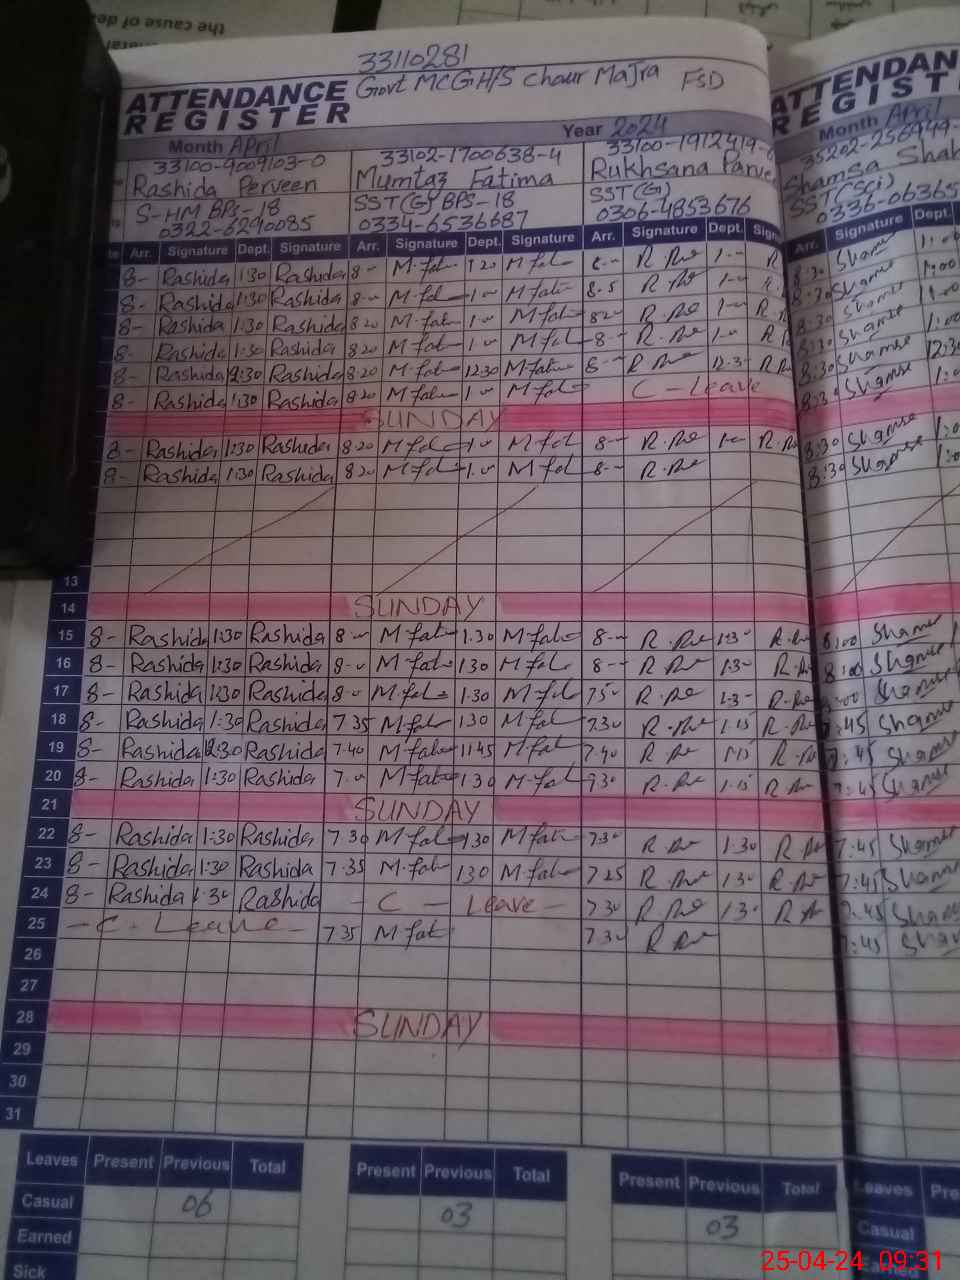 33110281
Govt MCGH/S Chaur Majra FSD
ATTENDANCE
REGISTER
Month April Year 2024
33100-9009103-0 33102-1700638-4 33100-1912419-
Rashida Perveen Mumtaz Fatima Rukhsana Parve
S-HM BPS-18 SST(G) BPS-18 SST(G)
0322-6290085 0334-6536687 0306-4853676
Arr. Signature Dept. Signature Arr. Signature Dept. Signature Arr. Signature Dept. Sign
8- Rashida 1:30 Rashida 8- M.fat 1.20 M.fat R.Par 1- R
8- Rashida 1:30 Rashida 8- M.fat 1- M.fat 8-5 R.Par 1- R.
8- Rashida 1:30 Rashida 8 20 M.fat 1- M.fat 8 20 R.Par 1- R.
8- Rashida 1:30 Rashida 8 20 M.fat 1- M.fat 8- R.Par 1- R
8- Rashida 12:30 Rashida 8 20 M.fat 12 30 M.fat 8- R.Par 12.3- R.
8- Rashida 1:30 Rashida 8 20 M.fat 1- M.fat C - Leave
SUNDAY
8- Rashida 1:30 Rashida 8 20 M.fat 1- M.fat 8- R.Par 1- R.
8- Rashida 1:30 Rashida 8 20 M.fat 1- M.fat 8- R.Par
13
14 SUNDAY
15 8- Rashida 1:30 Rashida 8- M.fat 1.30 M.fat 8- R.Par 1:3- R.Par
16 8- Rashida 1:30 Rashida 8- M.fat 1 30 M.fat 8- R.Par 1.30 R.Par
17 8- Rashida 1:30 Rashida 8- M.fat 1.30 M.fat 7 5- R.Par 1-3- R.Par
18 8- Rashida 1:30 Rashida 7 35 M.fat 1 30 M.fat 7.30 R.Par 1-15 R.Par
19 8- Rashida 12:30 Rashida 7.40 M.fat 11 45 M.fat 7.40 R.Par R.Par
20 8- Rashida 1:30 Rashida 7- M.fat 1.30 M.fat 7 30 R.Par 1-15 R.Par
21 SUNDAY
22 8- Rashida 1:30 Rashida 7 30 M.fat 1 30 M.fat 7.30 R.Par 1.30 R.Par
23 8- Rashida 1:30 Rashida 7.35 M.fat 1 30 M.fat 7 25 R.Par 1 30 R.Par
24 8- Rashida 1:30 Rashida - C - Leave - 7 30 R.Par 1 30 R.Par
25 - C. Leave - 7 35 M.fat 7.30 R.Par
26
27
28 SUNDAY
29
30
31
Leaves Present Previous Total Present Previous Total Present Previous Total
Casual 06 03 03
Earned
Sick
ATTENDAN
REGIST
Month April
35202-256949-
Shamsa Shah
SST(Sci)
0336-06365
Arr. Signature Dept.
8:30 Shamse 1:00
8:30 Shamse 1:00
8:30 Shamse 1:00
8:30 Shamse 1:00
8:30 Shamse 12:3
8:30 Shamse 1:0
8:30 Shamse 1:0
8:30 Shamse 1:0
8:00 Shamse
8:00 Shamse
8:00 Shamse
7:45 Shamse
7:45 Shamse
7:45 Shamse
7:45 Shamse
7:45 Shamse
7:45 Shamse
7:45 Sham
Leaves Pre
Casual
Earned
25-04-24 09:31
the cause of de